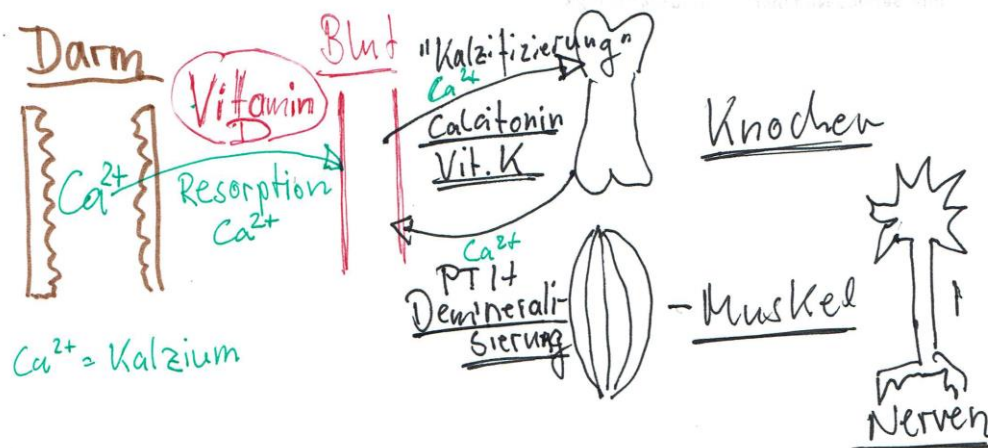 Darm
Vitamin
D
Blut
"Kalzifizierung"
Ca²⁺
Calcitonin
Vit. K
Knochen
Ca²⁺
Resorption
Ca²⁺
Ca²⁺
PTH
Deminerali-
sierung
- Muskel
Nerven
Ca²⁺ = Kalzium